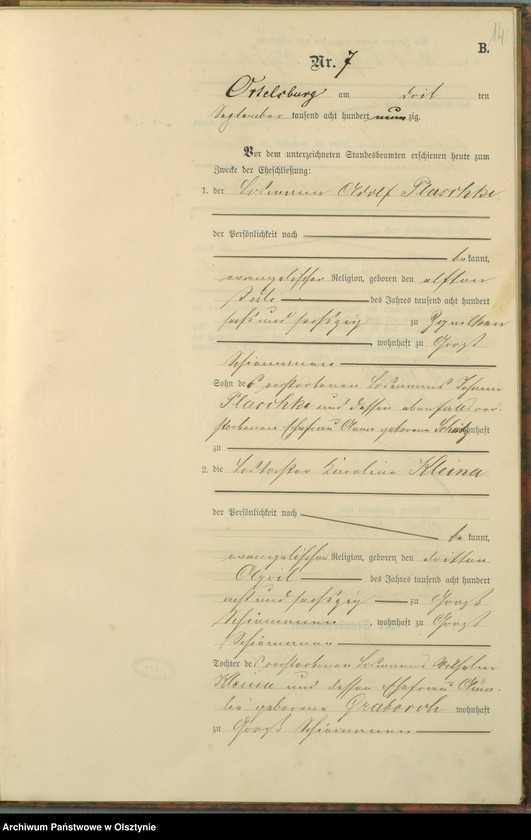 14
B.
Nr. 7
Ortelsburg am drit ten
September tausend acht hundert neunzig.
Vor dem unterzeichneten Standesbeamten erschienen heute zum
Zwecke der Eheschließung:
1. der Losmann Adolf Plaschke
der Persönlichkeit nach
bekannt,
evangelischer Religion, geboren den elften
Juli des Jahres tausend acht hundert
sechs und sechszig zu
, wohnhaft zu Groß
Schiemanen
Sohn des verstorbenen Losmanns Johann
Plaschke und dessen ebenfalls ver-
storbenen Ehefrau geborene wohnhaft
zu
2. die Lostochter Karoline Kleina
der Persönlichkeit nach
bekannt,
evangelischer Religion, geboren den dritten
April des Jahres tausend acht hundert
acht und sechszig zu Groß
Schiemanen, wohnhaft zu Groß
Schiemanen
Tochter des verstorbenen Losmanns Wilhelm
Kleina und dessen Ehefrau Ama-
lie geborene Grabosch wohnhaft
zu Groß Schiemanen
Archiwum Państwowe w Olsztynie